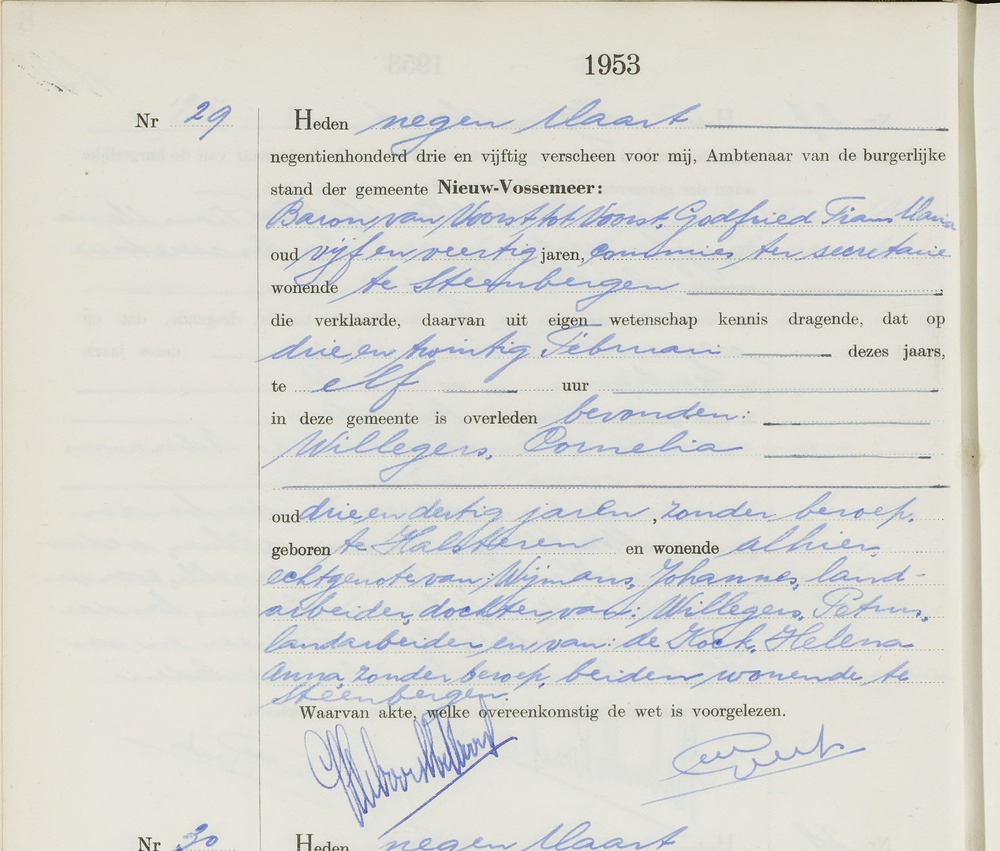 1953
Nr 29
Heden negen Maart
negentienhonderd drie en vijftig verscheen voor mij, Ambtenaar van de burgerlijke
stand der gemeente Nieuw-Vossemeer:
Baron van Voorst tot Voorst, Godfried Frans Maria
oud vijf en veertig jaren, commies ter secretarie
wonende te Steenbergen
die verklaarde, daarvan uit eigen wetenschap kennis dragende, dat op
drie en twintig Februari dezes jaars,
te elf uur
in deze gemeente is overleden bevonden:
Willegers, Cornelia
oud drie en dertig jaren, zonder beroep,
geboren te Halsteren en wonende alhier,
echtgenote van: Wijmans, Johannes, land-
arbeider, dochter van: Willegers, Petrus,
landarbeider, en van: de Kock, Helena
Anna, zonder beroep, beiden wonende te
Steenbergen.
Waarvan akte, welke overeenkomstig de wet is voorgelezen.
Nr 30
Heden negen Maart